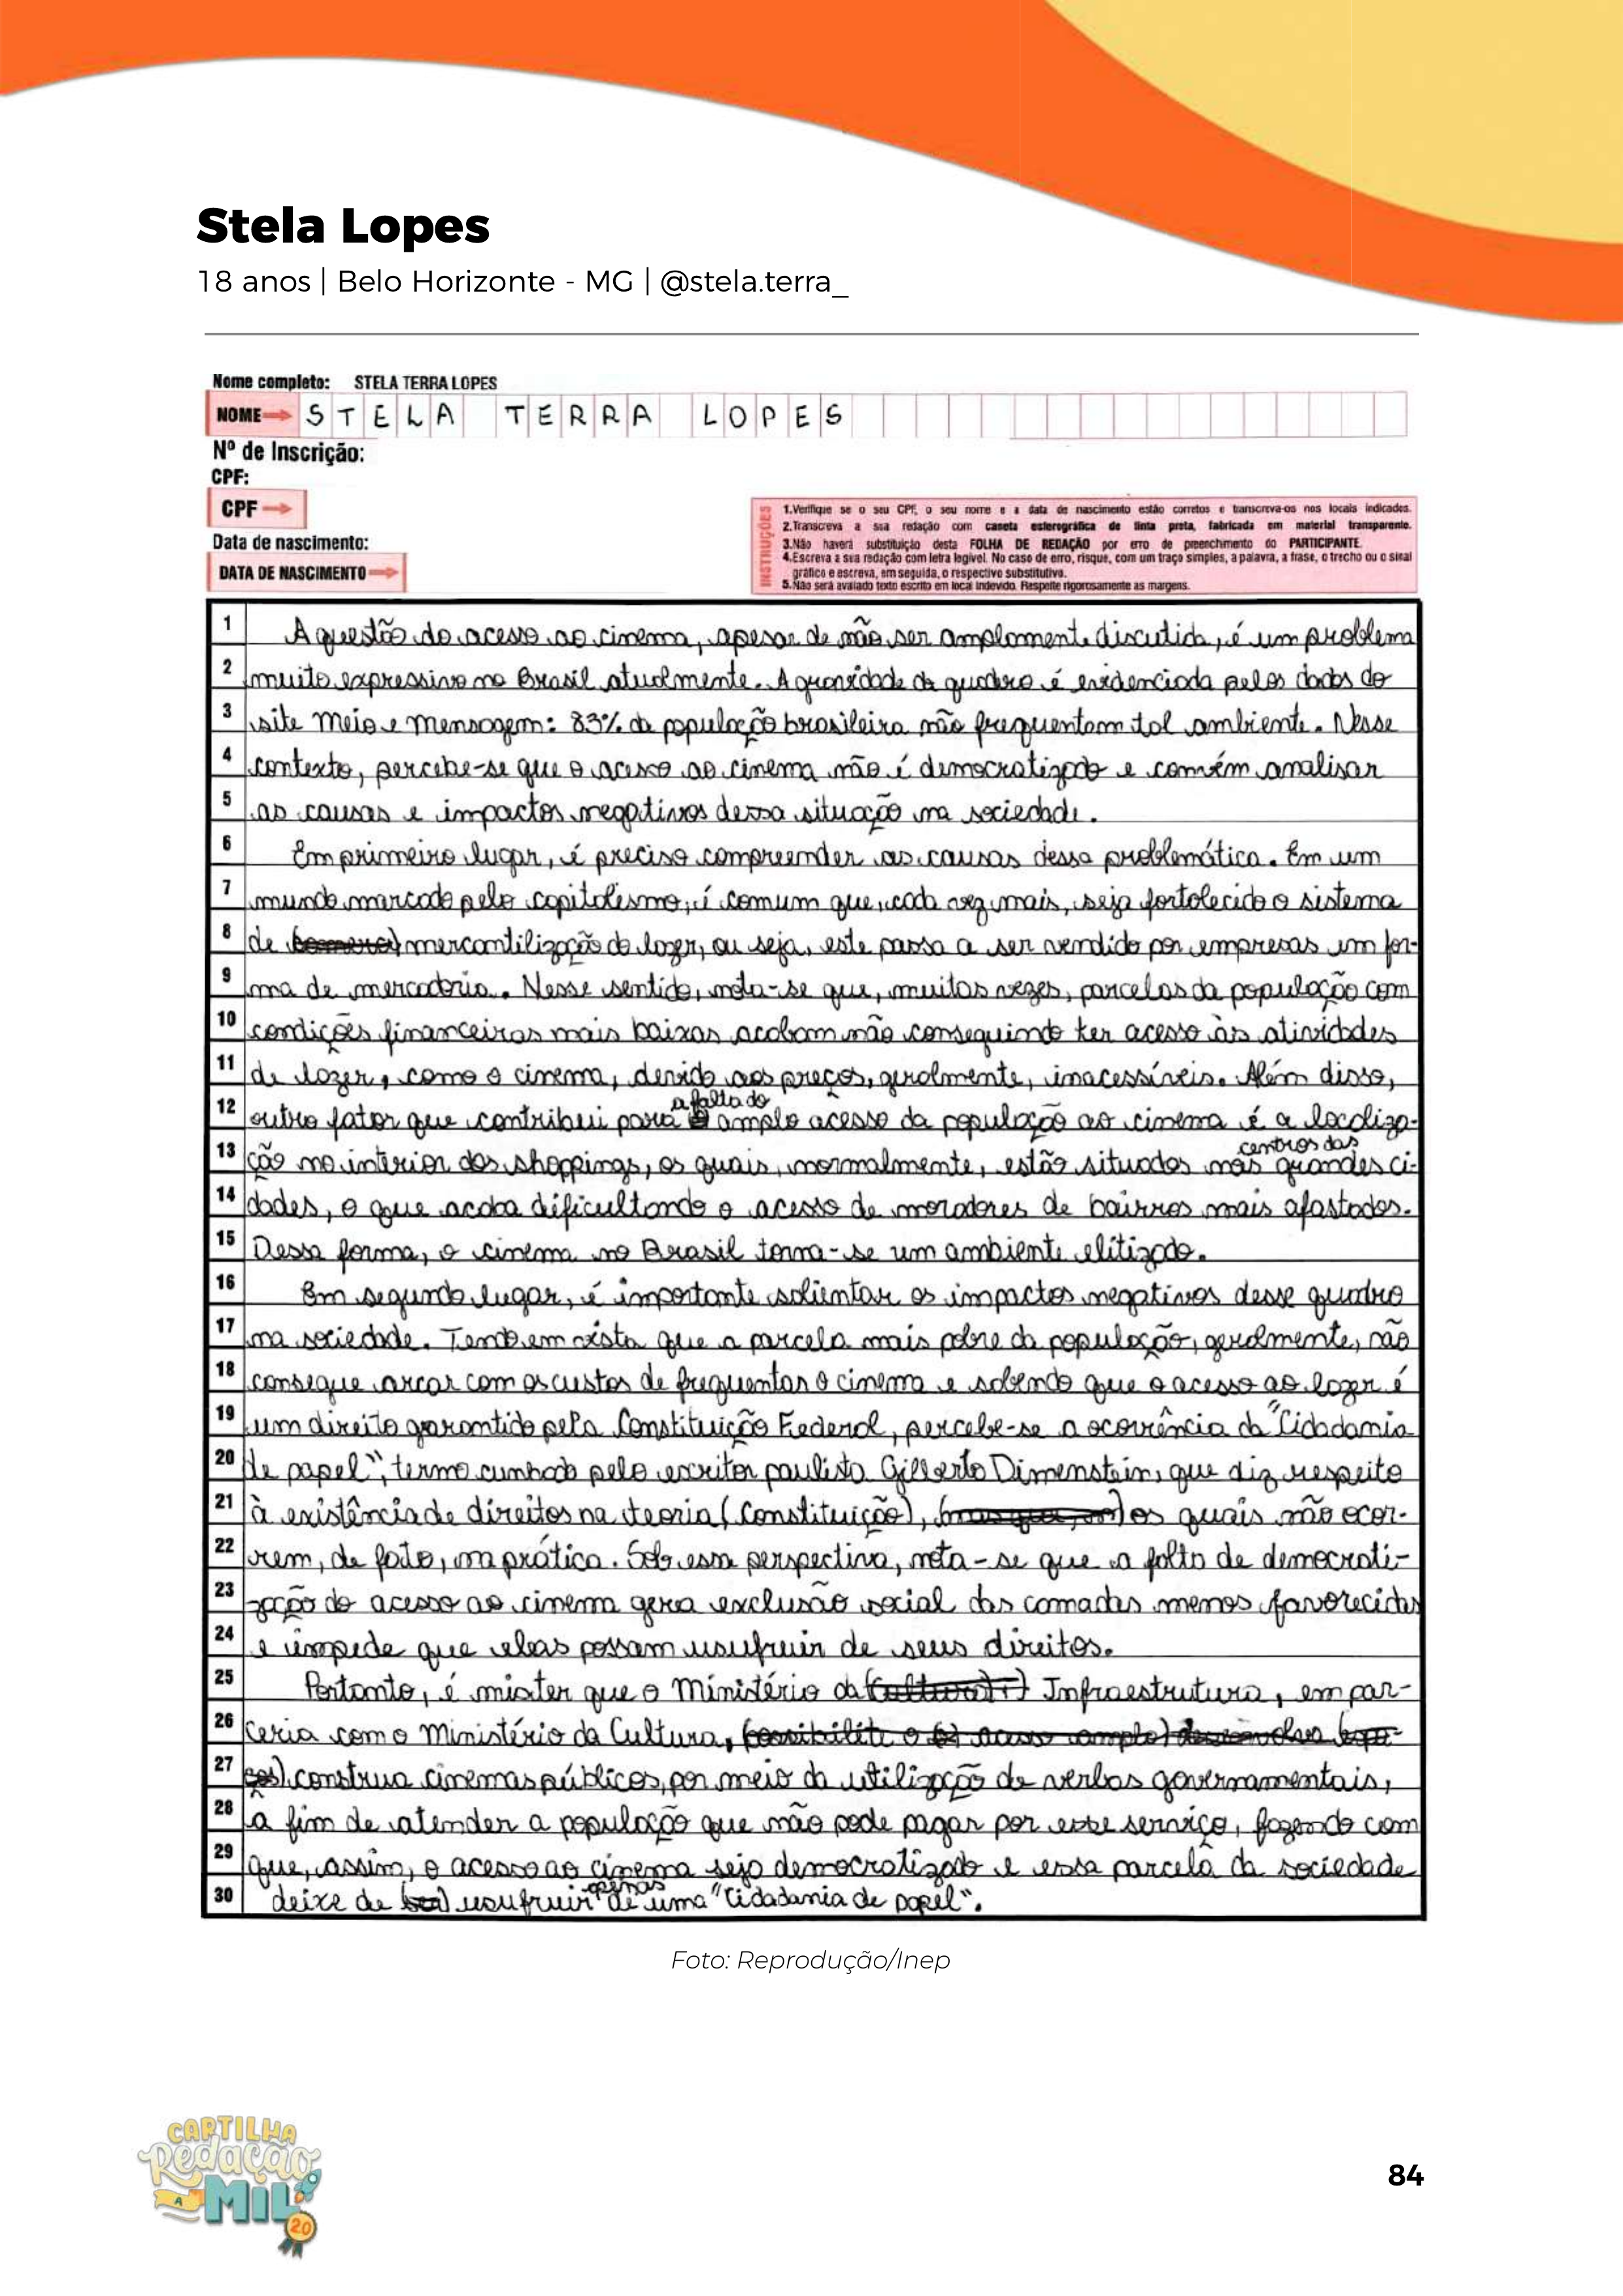 Stela Lopes
18 anos | Belo Horizonte - MG | @stela.terra_
Nome completo: STELA TERRA LOPES
NOME STELA TERRA LOPES
Nº de Inscrição:
CPF:
CPF
Data de nascimento:
DATA DE NASCIMENTO
INSTRUÇÕES
1.Verifique se o seu CPF, o seu nome e a data de nascimento estão corretos e transcreva-os nos locais indicados.
2.Transcreva a sua redação com caneta esferográfica de tinta preta, fabricada em material transparente.
3.Não haverá substituição desta FOLHA DE REDAÇÃO por erro de preenchimento do PARTICIPANTE.
4.Escreva a sua redação com letra legível. No caso de erro, risque, com um traço simples, a palavra, a frase, o trecho ou o sinal
gráfico e escreva, em seguida, o respectivo substitutivo.
5.Não será avaliado texto escrito em local indevido. Respeite rigorosamente as margens.
1 A questão do acesso ao cinema, apesar de não ser amplamente discutida, é um problema
2 muito expressivo no Brasil atualmente. A gravidade do quadro é evidenciada pelos dados do
3 site Meio e Mensagem: 83% da população brasileira não frequentam tal ambiente. Nesse
4 contexto, percebe-se que o acesso ao cinema não é democratizado e convém analisar
5 as causas e impactos negativos dessa situação na sociedade.
6 Em primeiro lugar, é preciso compreender as causas dessa problemática. Em um
7 mundo marcado pelo capitalismo, é comum que, cada vez mais, seja fortalecido o sistema
8 de mercantilização do lazer, ou seja, este passa a ser vendido por empresas em for-
9 ma de mercadoria. Nesse sentido, nota-se que, muitas vezes, parcelas da população com
10 condições financeiras mais baixas acabam não conseguindo ter acesso às atividades
11 de lazer, como o cinema, devido aos preços, geralmente, inacessíveis. Além disso,
12 outro fator que contribui para a falta do amplo acesso da população ao cinema é a localiza-
13 ção no interior dos shoppings, os quais, normalmente, estão situados nos centros das grandes ci-
14 dades, o que acaba dificultando o acesso de moradores de bairros mais afastados.
15 Dessa forma, o cinema no Brasil torna-se um ambiente elitizado.
16 Em segundo lugar, é importante salientar os impactos negativos desse quadro
17 na sociedade. Tendo em vista que a parcela mais pobre da população, geralmente, não
18 consegue arcar com os custos de frequentar o cinema e sabendo que o acesso ao lazer é
19 um direito garantido pela Constituição Federal, percebe-se a ocorrência da "Cidadania
20 de papel", termo cunhado pelo escritor paulista Gilberto Dimenstein, que diz respeito
21 à existência de direitos na teoria (Constituição), os quais não ocor-
22 rem, de fato, na prática. Sob essa perspectiva, nota-se que a falta de democrati-
23 zação do acesso ao cinema gera exclusão social das camadas menos favorecidas
24 e impede que elas possam usufruir de seus direitos.
25 Portanto, é mister que o Ministério da (Cultura) Infraestrutura, em par-
26 ceria com o Ministério da Cultura, (possibilite o acesso amplo)
27 construa cinemas públicos, por meio da utilização de verbas governamentais,
28 a fim de atender a população que não pode pagar por esse serviço, fazendo com
29 que, assim, o acesso ao cinema seja democratizado e essa parcela da sociedade
30 deixe de usufruir apenas de uma "Cidadania de papel".
Foto: Reprodução/Inep
CARTILHA
Redação
A MIL
2.0
84